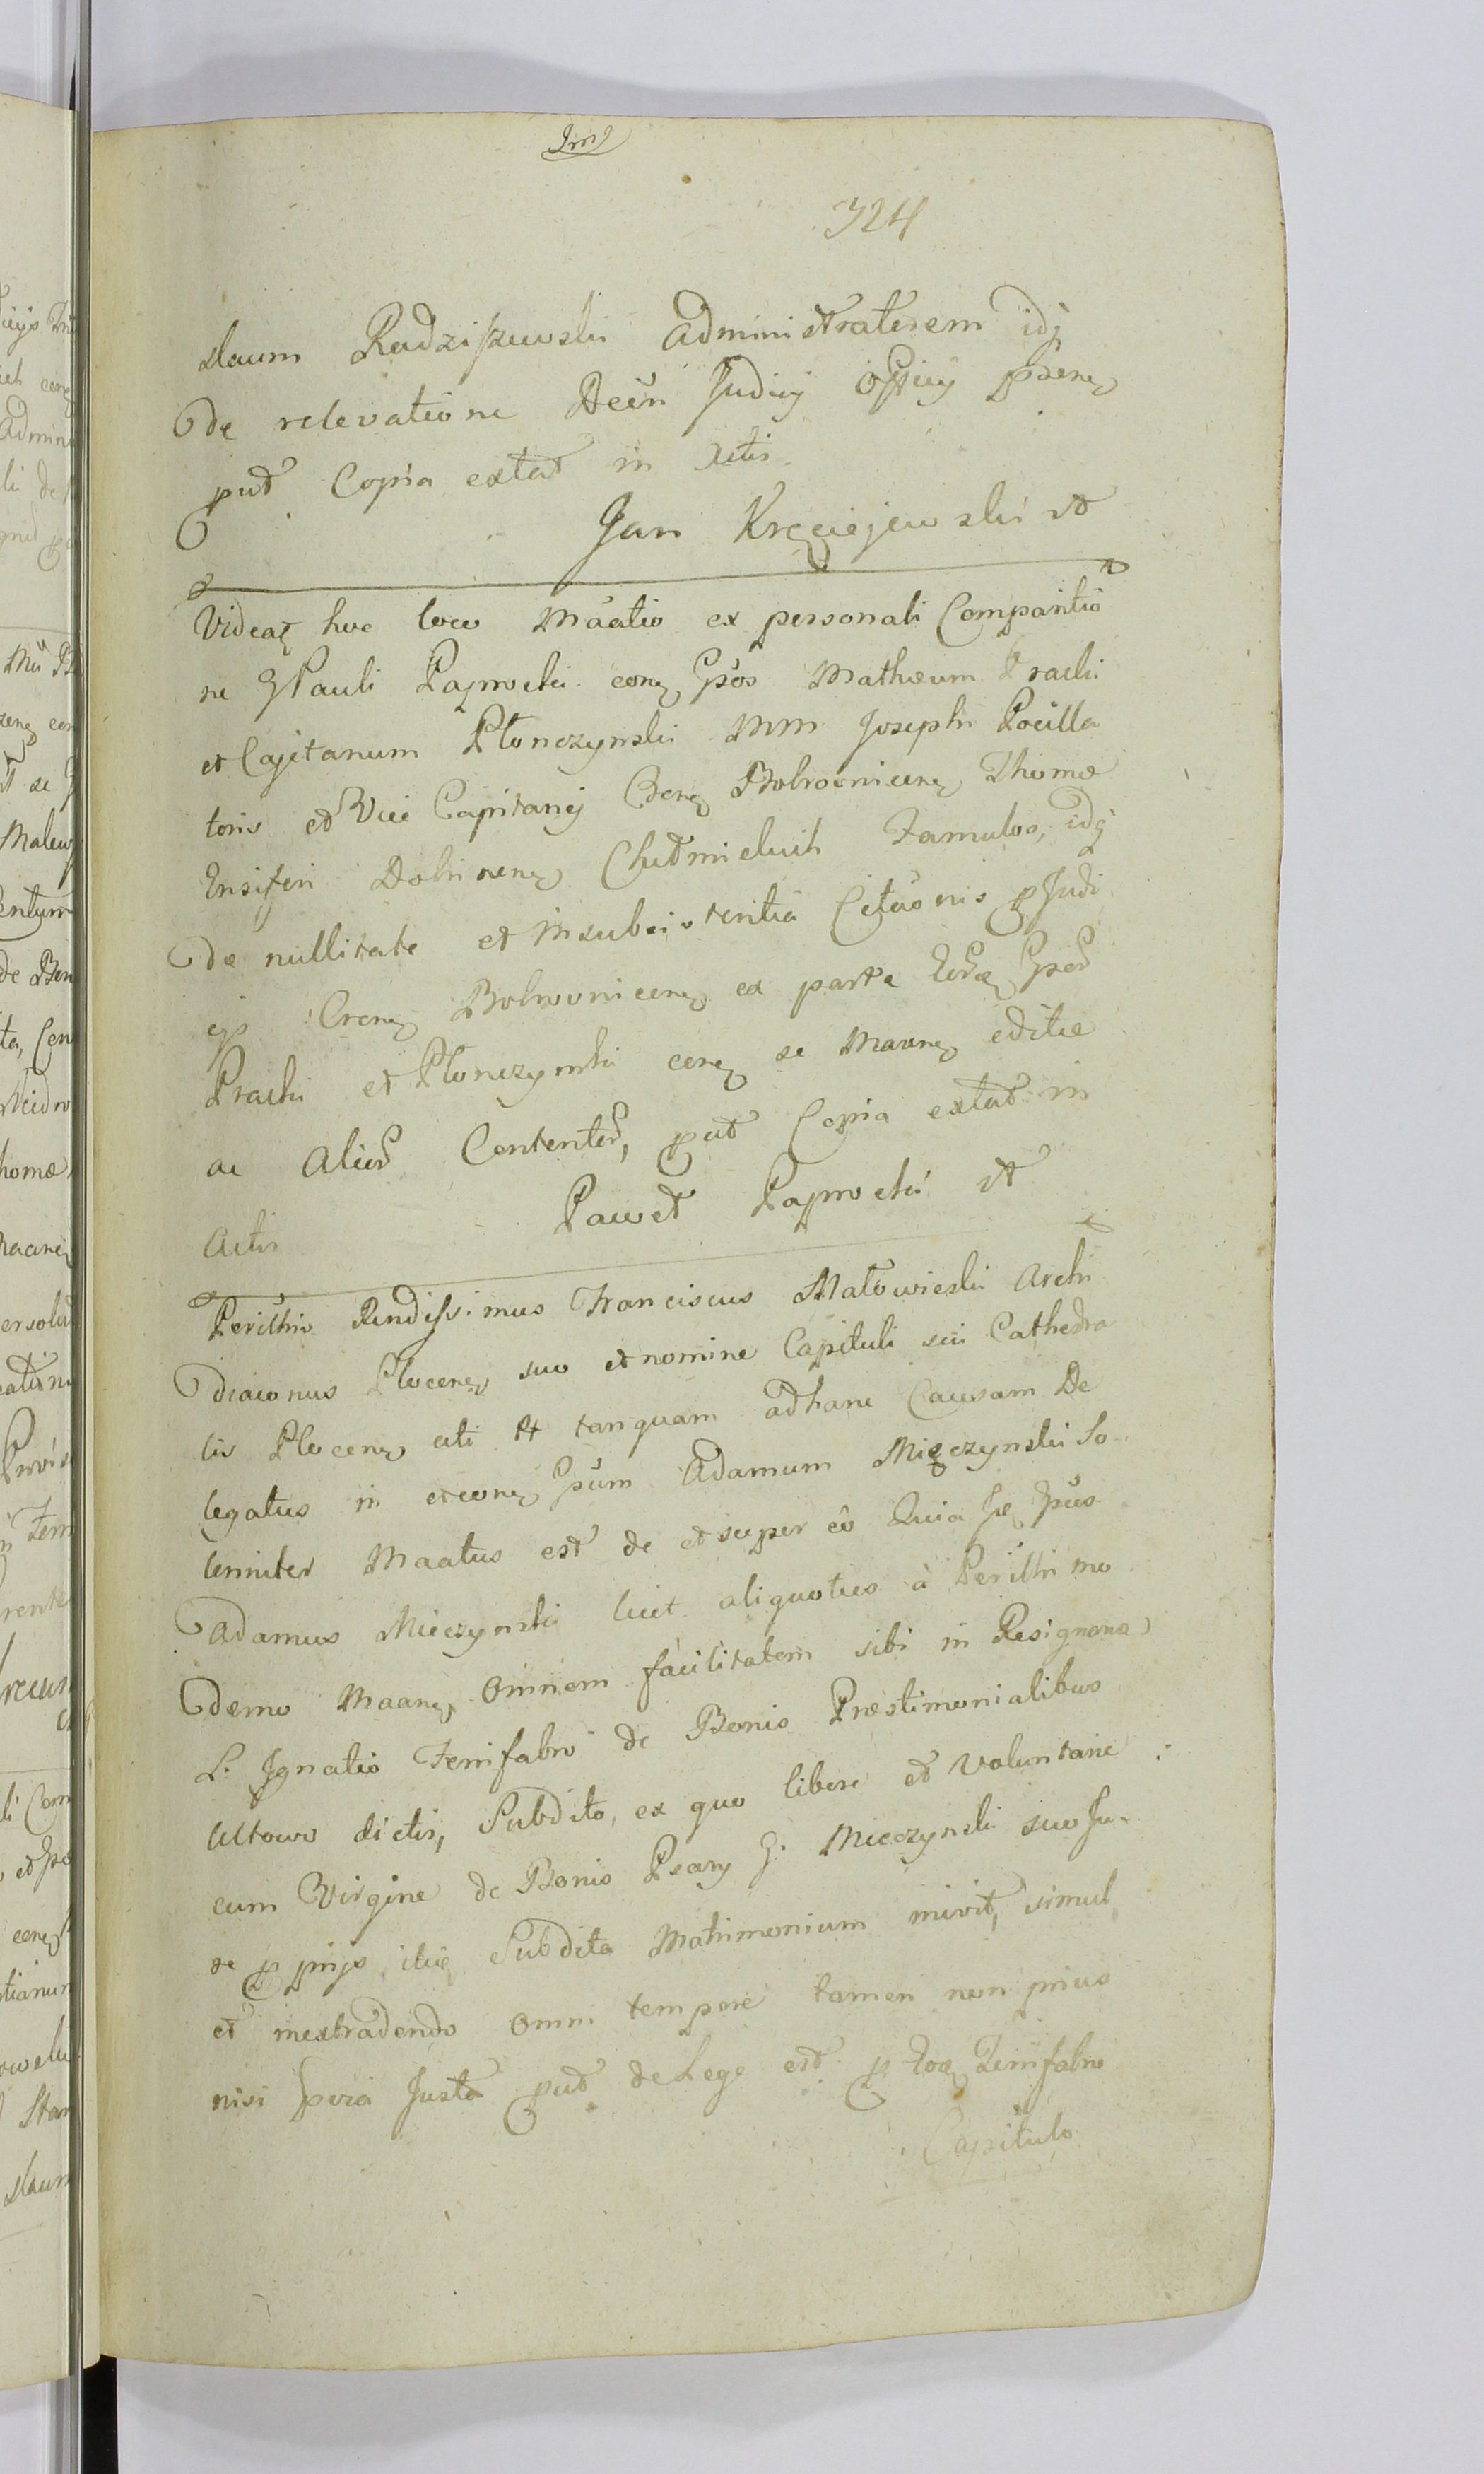 324
slaum Radziszewski Administratorem idq
de relevatione Decri Judicij Officij pntrenę
put Copia extat in Actis
Jan Kręciejewski
Videaţ hoc loco Māatio ex personali Comparitio
ne G Pauli Paprocki conę Gṗos Mathæum Pracki
et Cajetanum Płonczynski Mm Josephi Pocilla
toris et Vice Capitanej Crenę Bobrovnicenę Thomæ
Ensiferi Dobrinenę Chełmickich Famulos, idq
de nullitate et insubsistentia Citāonis p Judi
cijs Crenę Bobrovnicenę ex parte Eorō Gpor
Pracki et Płonczynski conę se Maanę editæ
ac alior Contentor, put Copia extat in
Actis Paweł Paprocki
Perillris Rendissimus Franciscus Małowieski Archi
diaconus Plocenę suo et nomine Capituli sui Cathedra
lis Plocenę uti et tanquam ad hanc Causam De
legatus in et conę Gsum Adamum Mięczynski So
lenniter Maatus est de et super eo Quia Jdę Gṗus
Adamus Mieczynski licet aliquoties à Perillri mo
derno Maanę Omnem facilitatem sibi in Resignanā
L: Ignatio Ferrifabro de Bonis Præstimonialibus
Ułtowo dictis, Subdito, ex quo libere et Voluntarie
cum Virgine de Bonis Psary G. Mieczynski suo Ju-
re p prijs itię Subdita Matrimonium inivit, simul
et inextradendo omni tempore tamen non prius
nisi pera Justa put de Lege est p Eoę Ferrifabro
Capitulo